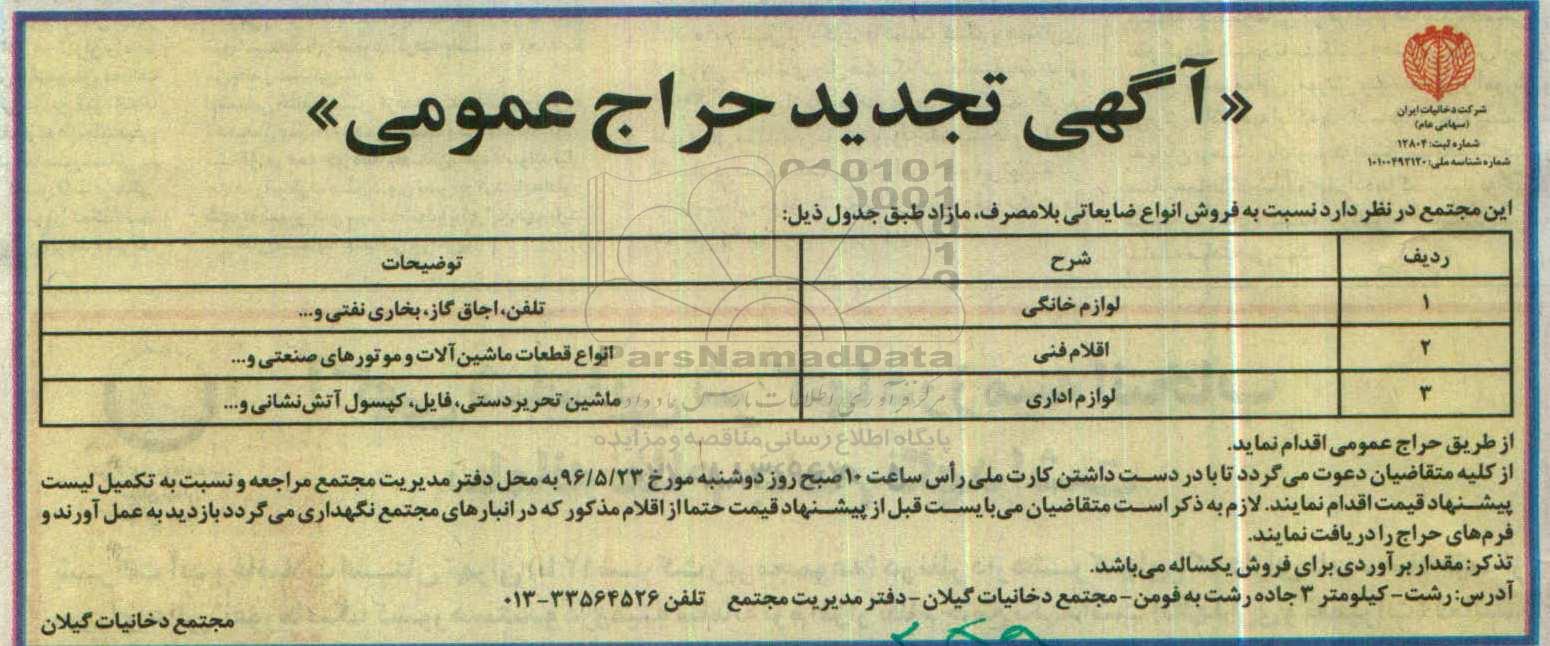 «آگهی تجدید حراج عمومی»
شرکت دخانیات ایران
(سهامی عام)
شماره ثبت: ۱۲۸۰۴
شماره شناسه ملی: ۱۰۱۰۰۴۹۲۱۲۰
این مجتمع در نظر دارد نسبت به فروش انواع ضایعاتی بلامصرف، مازاد طبق جدول ذیل:
ردیف شرح توضیحات
۱ لوازم خانگی تلفن، اجاق گاز، بخاری نفتی و...
۲ اقلام فنی انواع قطعات ماشین‌آلات و موتورهای صنعتی و...
۳ لوازم اداری ماشین تحریر دستی، فایل، کپسول آتش‌نشانی و...
از طریق حراج عمومی اقدام نماید.
از کلیه متقاضیان دعوت می‌گردد تا با در دست داشتن کارت ملی رأس ساعت ۱۰ صبح روز دوشنبه مورخ ۹۶/۵/۲۳ به محل دفتر مدیریت مجتمع مراجعه و نسبت به تکمیل لیست
پیشنهاد قیمت اقدام نمایند. لازم به ذکر است متقاضیان می‌بایست قبل از پیشنهاد قیمت حتما از اقلام مذکور که در انبارهای مجتمع نگهداری می‌گردد بازدید به عمل آورند و
فرم‌های حراج را دریافت نمایند.
تذکر: مقدار برآوردی برای فروش یکساله می‌باشد.
آدرس: رشت - کیلومتر ۳ جاده رشت به فومن - مجتمع دخانیات گیلان - دفتر مدیریت مجتمع تلفن ۳۳۵۶۴۵۲۶-۰۱۳
مجتمع دخانیات گیلان
ParsNamadData
پایگاه اطلاع رسانی مناقصه و مزایده